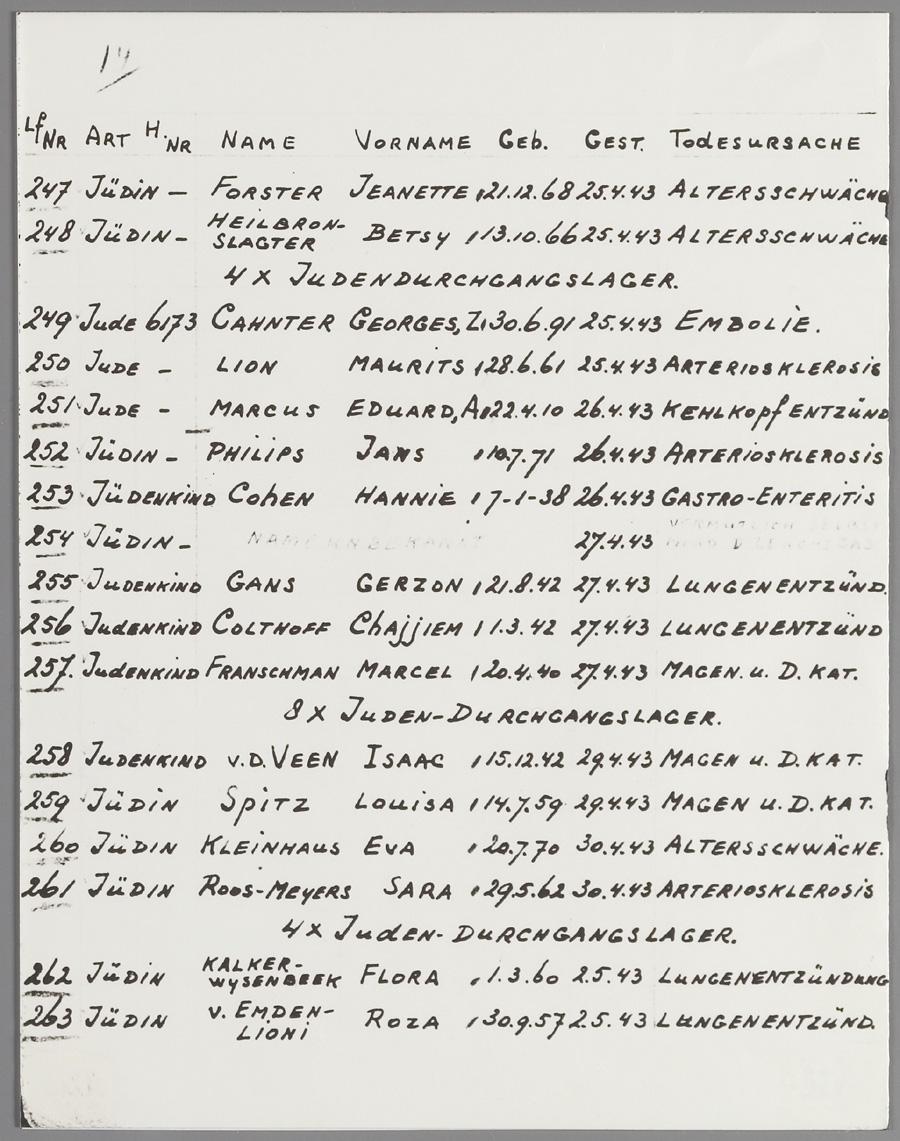 14
Lf NR ART H. NR NAME VORNAME Geb. GEST. TodESURSACHE
247 JÜDIN - FORSTER JEANETTE 21.12.68 25.4.43 ALTERSSCHWÄCHE
248 JÜDIN - HEILBRON-SLAGTER BETSY 13.10.66 25.4.43 ALTERSSCHWÄCHE
4 X JUDENDURCHGANGSLAGER.
249 Jude 6173 CAHNTER GEORGES, Z. 30.6.91 25.4.43 EMBOLIE.
250 JUDE - LION MAURITS 28.6.61 25.4.43 ARTERIOSKLEROSIS
251 JUDE - MARCUS EDUARD, A. 22.4.10 26.4.43 KEHLKOPFENTZÜND
252 JÜDIN - PHILIPS JANS 10.7.71 26.4.43 ARTERIOSKLEROSIS
253 JÜDENKIND COHEN HANNIE 7-1-38 26.4.43 GASTRO-ENTERITIS
254 JÜDIN - NAME UNBEKANNT 27.4.43
255 JUDENKIND GANS GERZON 21.8.42 27.4.43 LUNGENENTZÜND.
256 JUDENKIND COLTHOFF CHAJJIEM 1.3.42 27.4.43 LUNGENENTZÜND
257. JUDENKIND FRANSCHMAN MARCEL 20.4.40 27.4.43 MAGEN. u. D. KAT.
8 X JUDEN-DURCHGANGSLAGER.
258 JUDENKIND v.D. VEEN ISAAC 15.12.42 29.4.43 MAGEN u. D. KAT.
259 JÜDIN SPITZ LOUISA 14.7.59 29.4.43 MAGEN u. D. KAT.
260 JÜDIN KLEINHAUS EVA 20.7.70 30.4.43 ALTERSSCHWÄCHE.
261 JÜDIN ROOS-MEYERS SARA 29.5.62 30.4.43 ARTERIOSKLEROSIS
4 X JUDEN-DURCHGANGSLAGER.
262 JÜDIN KALKER-WYSENBEEK FLORA 1.3.60 2.5.43 LUNGENENTZÜNDUNG
263 JÜDIN v. EMDEN-LIONI ROZA 30.9.57 2.5.43 LUNGENENTZÜND.